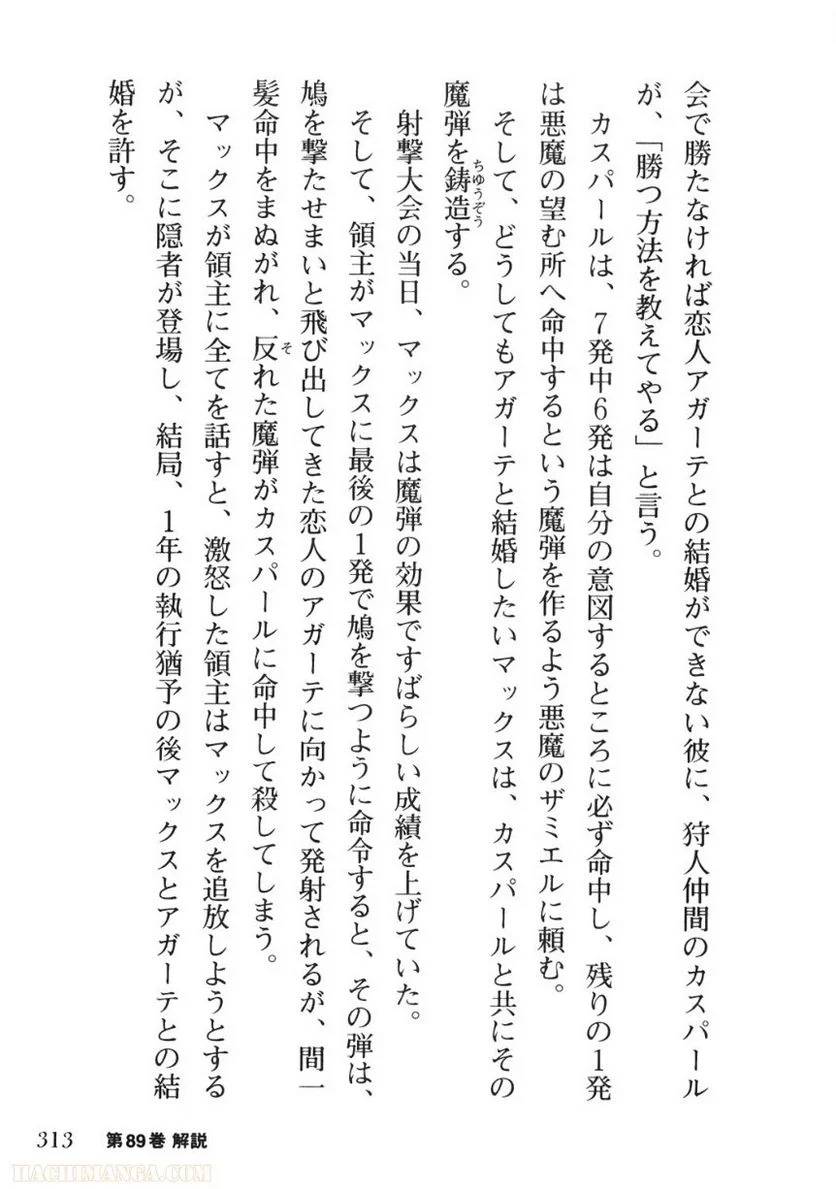 会で勝たなければ恋人アガーテとの結婚ができない彼に、狩人仲間のカスパール
が、「勝つ方法を教えてやる」と言う。
カスパールは、７発中６発は自分の意図するところに必ず命中し、残りの１発
は悪魔の望む所へ命中するという魔弾を作るよう悪魔のザミエルに頼む。
そして、どうしてもアガーテと結婚したいマックスは、カスパールと共にその
魔弾を鋳造する。
ちゅうぞう
射撃大会の当日、マックスは魔弾の効果ですばらしい成績を上げていた。
そして、領主がマックスに最後の１発で鳩を撃つように命令すると、その弾は、
鳩を撃たせまいと飛び出してきた恋人のアガーテに向かって発射されるが、間一
髪命中をまぬがれ、反れた魔弾がカスパールに命中して殺してしまう。
そ
マックスが領主に全てを話すと、激怒した領主はマックスを追放しようとする
が、そこに隠者が登場し、結局、１年の執行猶予の後マックスとアガーテとの結
婚を許す。
313 第89巻 解説
HACHIMANGA.COM